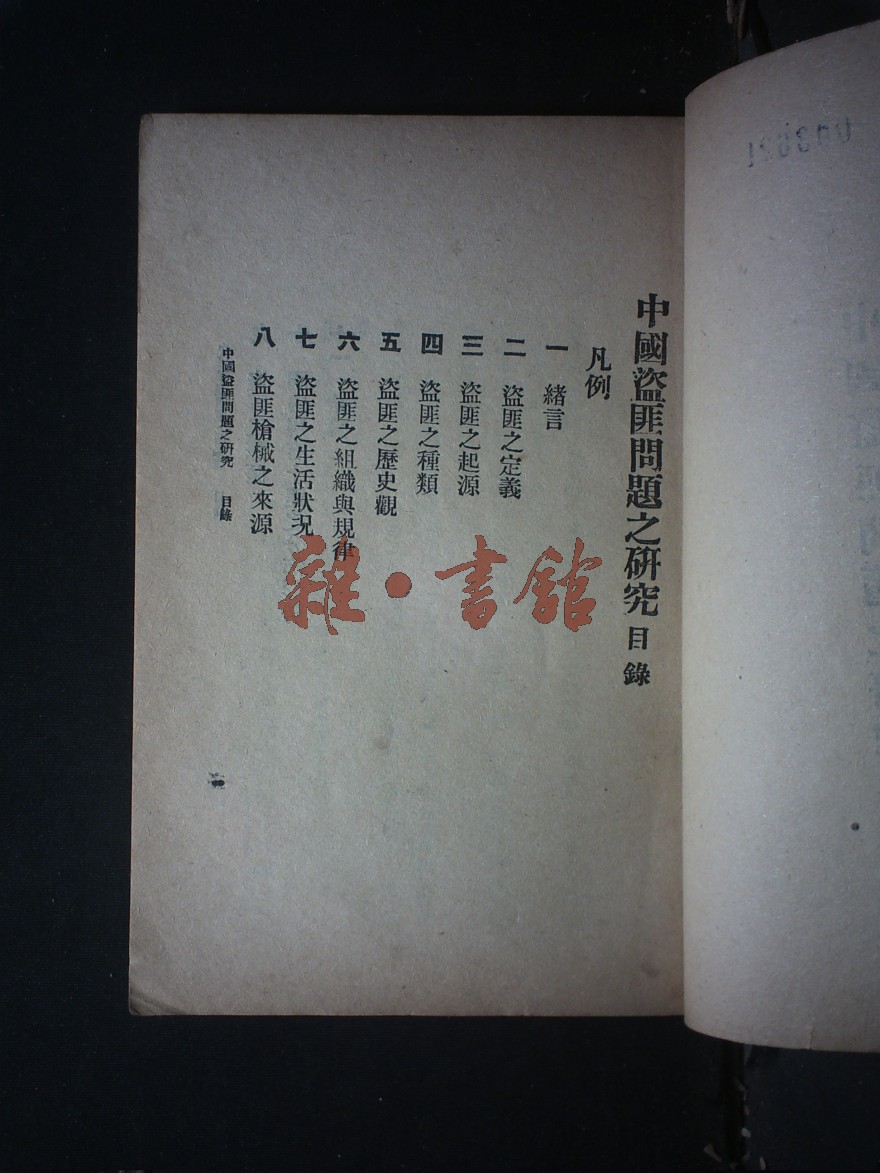 中國盜匪問題之研究 目錄
凡例
一 緒言
二 盜匪之定義
三 盜匪之起源
四 盜匪之種類
五 盜匪之歷史觀
六 盜匪之組織與規律
七 盜匪之生活狀況
八 盜匪槍械之來源
中國盜匪問題之研究 目錄
一
雜·書館